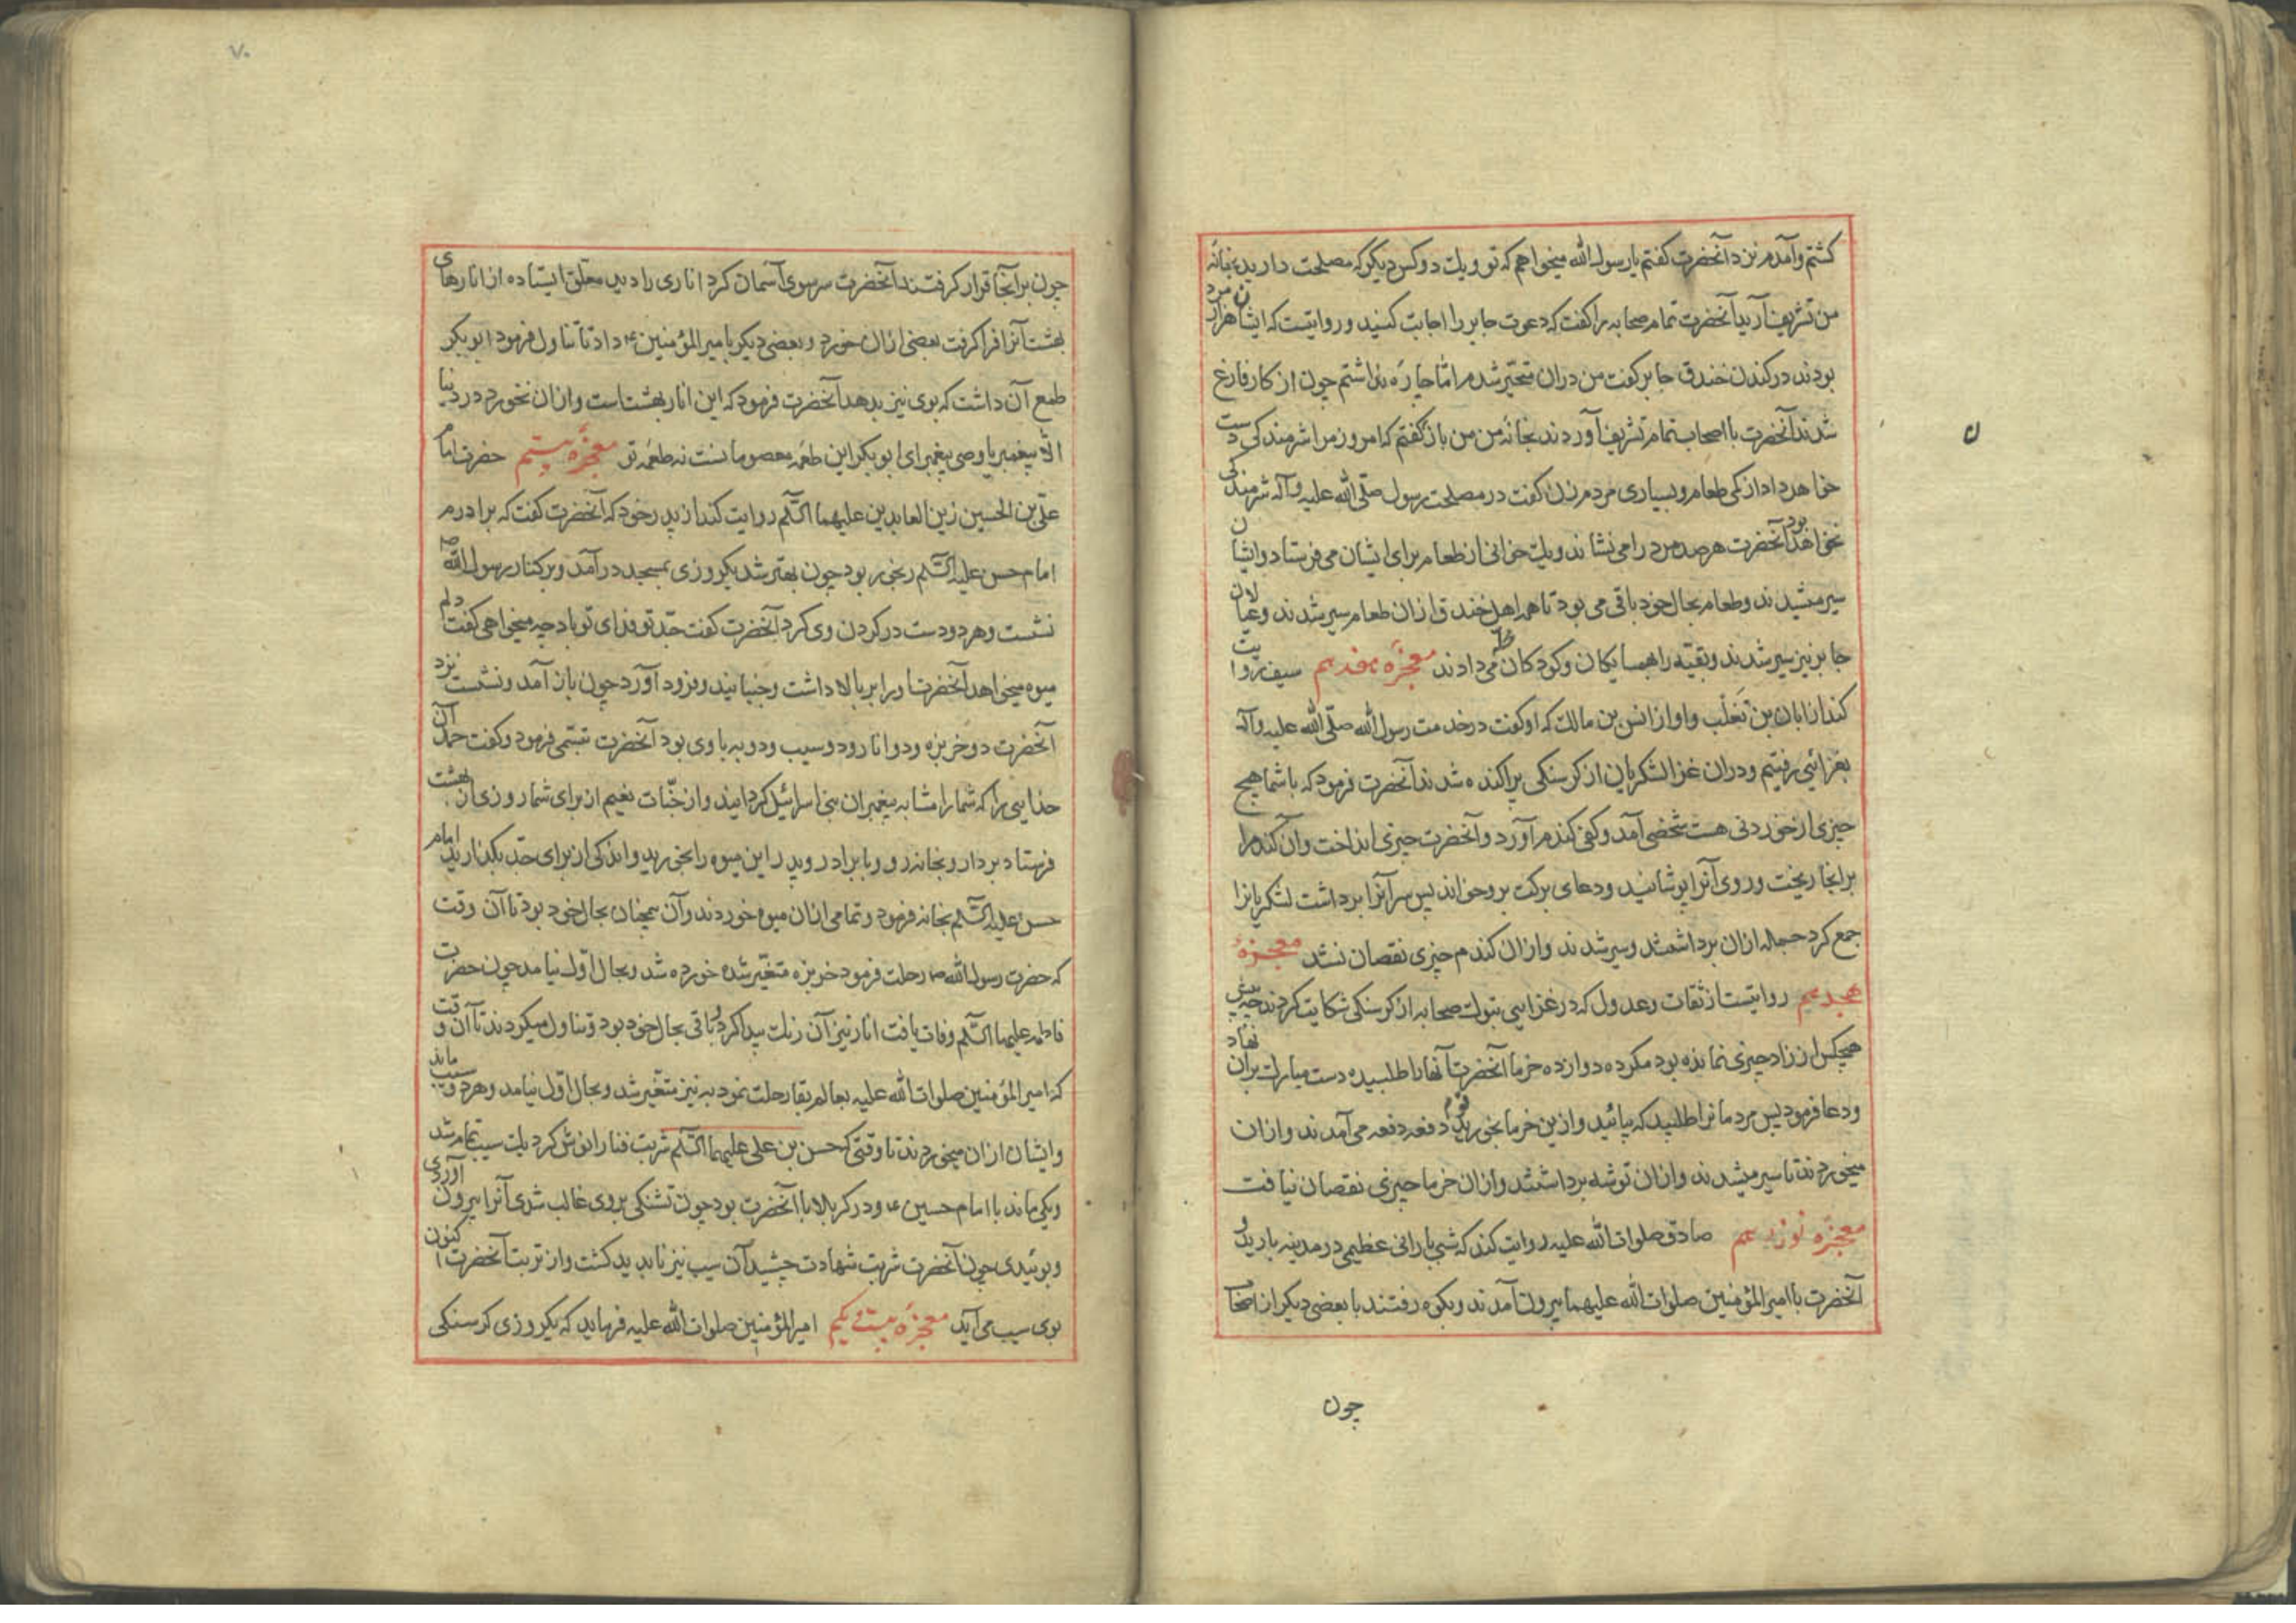 کشتم وآمدم نزد آنحضرت کفتم یا رسول الله میخواهم که تو ویک دوکس دیکر که مصلحت دارید بخانهٔ
من تشریف آرید آنحضرت تمام صحابه را کفت که دعوت جابر را اجابت کنید و روایتست که ایشان هزار مرد
بودند در کندن خندق جابر کفت من دران متحیّر شدم امّا چارهٔ نداشتم چون از کار فارغ
شدند آنحضرت با اصحاب تمام تشریف آوردند بخانهٔ من من باز کفتم که امروز مرا شرمندکی دست
ن
خواهد داد از کمی طعام وبسیاری مردم زن کفت در مصلحت رسول صلّی الله علیه وآله شرمندکی
نخواهد بود آنحضرت هر صد مرد را می نشاند ویک خوانی از طعام برای ایشان می فرستاد وایشان
سیر میشدند وطعام بحال خود باقی می بود تا همه اهل خندق ازان طعام سیر شدند وعیالان
جابر نیز سیر شدند وبقیّه را همسایکان وکودکان را می دادند معجزهٔ هفدهم سیف روایت
کند از ابان بن تغلب واو از انس بن مالک که او کفت در خدمت رسول الله صلّی الله علیه وآله
بغزائی رفتیم ودران غزا لشکریان از کرسنکی پراکنده شدند آنحضرت فرمود که با شما هیچ
چیزی از خوردنی هست شخصی آمد وکفی کندم آورد وآنحضرت چیزی انداخت وآن کندم را
برانجا ریخت وروی آنرا پوشانید ودعای برکت بروخواند پس سر آنرا برداشت لشکریانرا
جمع کرد جمله ازان برداشتند وسیر شدند وازان کندم چیزی نقصان نشد معجزهٔ
هجدهم روایتست از ثقات وعدول که در غزایی تبوک صحابه از کرسنکی شکایت کردند چه پیش
هیچکس از زاد چیزی نمانده بود مکر ده دوازده خرما آنحضرت آنها را طلبیده دست مبارک بران نهاد
ودعا فرمود پس مردمانرا طلبید که بیائید وازین خرما بخورید قوم دفعه دفعه می آمدند وازان
میخوردند تا سیر میشدند وازان توشه برداشتند وازان خرما چیزی نقصان نیافت
معجزهٔ نوزدهم صادق صلوات الله علیه روایت کند که شبی بارانی عظیمی در مدینه بارید و
آنحضرت با امیر المؤمنین صلوات الله علیهما بیرون آمدند وبکوه رفتند با بعضی دیکر از اصحاب
چون
۷۰
چون برآنجا قرار کرفتند آنحضرت سر سوی آسمان کرد اناری را دید معلق ایستاده از انارهای
بهشت آنرا فرا کرفت بعضی ازان خورد وبعضی دیکر بامیر المؤمنین ع داد تا تناول فرمود ابو بکر
طمع آن داشت که بوی نیز بدهد آنحضرت فرمود که این انار بهشتست وازان نخورد در دنیا
الّا پیغمبر یا وصی پیغمبر ای ابو بکر این طعمهٔ معصومانست نه طعمهٔ تو معجزهٔ بیستم حضرت امام
علیّ بن الحسین زین العابدین علیهما السّلم روایت کند از پدر خود که آنحضرت کفت که برادرم
امام حسن علیه السّلم رنجور بود چون بهتر شد یکروزی بمسجد درآمد وبرکنار رسول الله ص
نشست وهر دو دست در کردن وی کرد آنحضرت کفت جدّ تو فدای تو باد چه میخواهی کفت دلم
میوه میخواهد آنحضرت او را بر بالا داشت وجنبانید وفرود آورد چون باز آمد ونشست نزد
آنحضرت دو خربزه ودو انار ودو سیب ودو به با وی بود آنحضرت تبسّمی فرمود وکفت حمد آن
خدایی را که شما را مشابه پیغمبران بنی اسرائیل کردانید واز جنّات نعیم از برای شما روزی از بهشت
فرستاد بردار وبخانه رو وبا برادر وپدر این میوه را بخورید واندکی از برای جدّ بکذارید امام
حسن علیه السّلم بخانه فرمود وتمامی ازان میوه خوردند وآن همچنان بحال خود بود تا آن وقت
که حضرت رسول الله ص رحلت فرمود خربزه متغیّر شده خورده شد وبحال اوّل نیامد چون حضرت
فاطمه علیهما السّلم وفات یافت انار نیز آن رنک پیدا کرد وباقی بحال خود بود وتناول میکردند تا آن وقت
که امیر المؤمنین صلوات الله علیه بعالم بقا رحلت نمود به نیز متغیّر شد وبحال اوّل نیامد وهر دو سیب ماند
وایشان ازان میخوردند تا وقتی که حسن بن علی علیهما السّلم شربت فنا را نوش کرد یک سیب تمام شد
ویکی ماند با امام حسین ع ودر کربلا با آنحضرت بود چون تشنکی بروی غالب شدی آنرا بیرون آوردی
وبوئیدی چون آنحضرت شربت شهادت چشید آن سیب نیز ناپدید کشت واز تربت آنحضرت اکنون
بوی سیب می آید معجزهٔ بیست ویکم امیر المؤمنین صلوات الله علیه فرماید که یکروزی کرسنکی